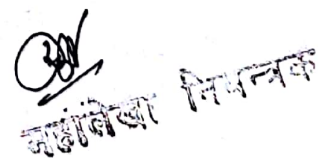 महालेखा नियन्त्रक